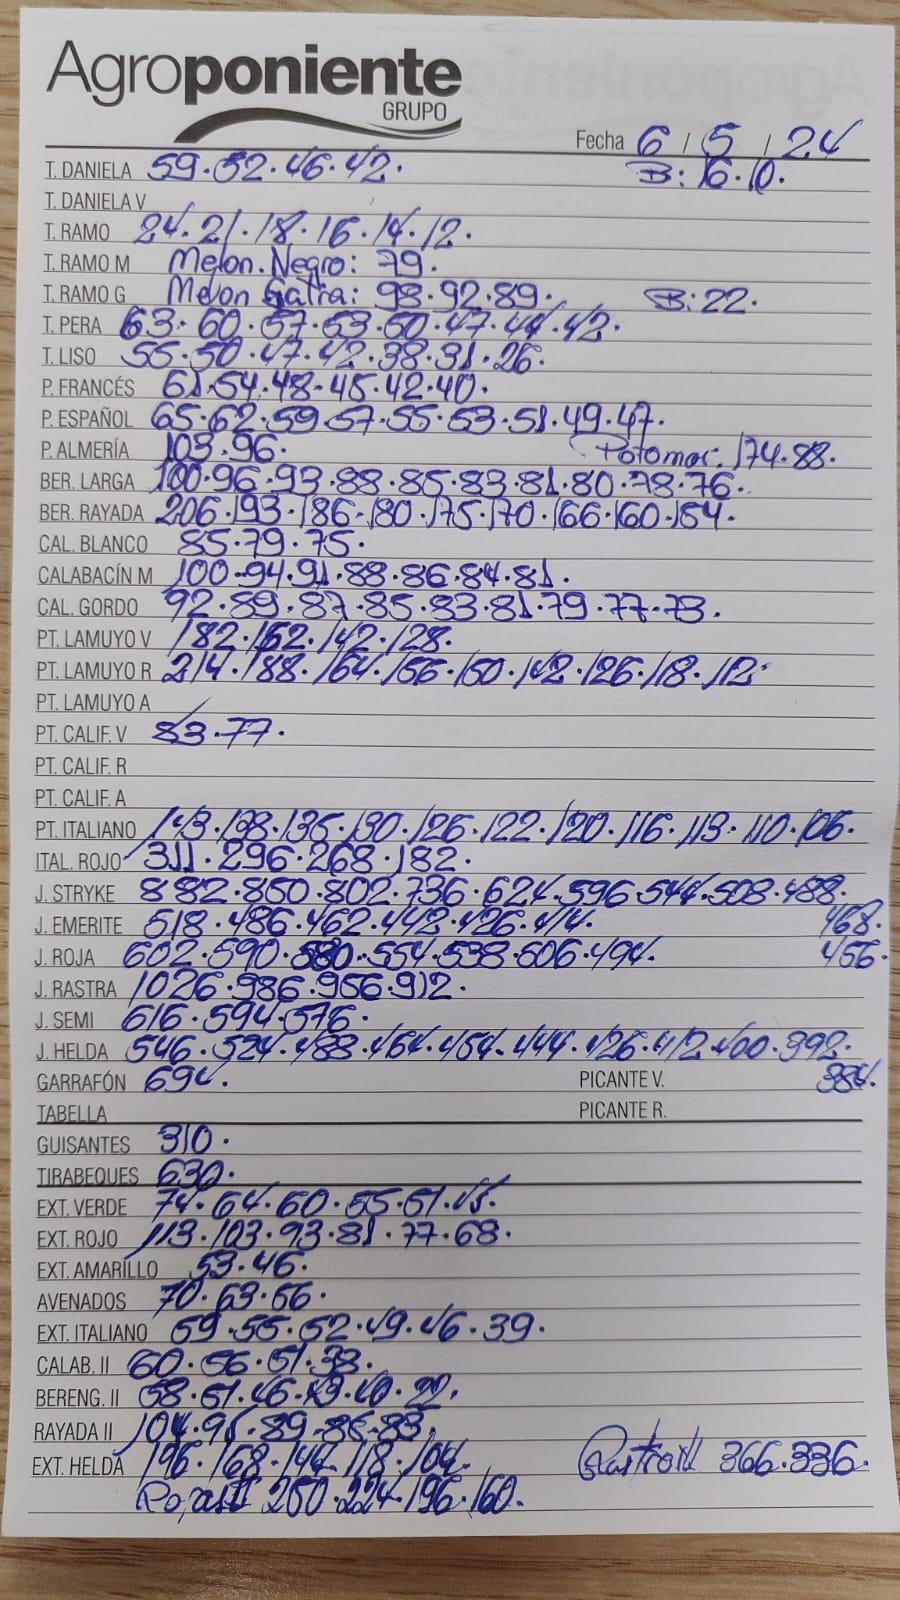 Agroponiente
GRUPO
Fecha 6 / 5 / 24
T. DANIELA 59.52.46.42. B: 16.10.
T. DANIELA V
T. RAMO 24.21.18.16.14.12.
T. RAMO M Melon.Negro: 79.
T. RAMO G Melon Galia: 98.92.89. B:22.
T. PERA 63.60.57.53.50.47.44.42.
T. LISO 55.50.47.42.38.31.26.
P. FRANCÉS 61.54.48.45.42.40.
P. ESPAÑOL 65.62.59.57.55.53.51.49.47.
P. ALMERÍA 103.96. Potomac. 174.88.
BER. LARGA 100.96.93.88.85.83.81.80.78.76.
BER. RAYADA 206.193.186.180.175.170.166.160.154.
CAL. BLANCO 85.79.75.
CALABACÍN M 100.94.91.88.86.84.81.
CAL. GORDO 92.89.87.85.83.81.79.77.73.
PT. LAMUYO V 182.162.142.128.
PT. LAMUYO R 214.188.164.156.150.142.126.118.112.
PT. LAMUYO A
PT. CALIF. V 83.77.
PT. CALIF. R
PT. CALIF. A
PT. ITALIANO 143.138.135.130.126.122.120.116.113.110.106.
ITAL. ROJO 311.296.268.182.
J. STRYKE 882.850.802.736.624.596.544.508.488.
J. EMERITE 518.486.462.442.426.414. 468.
J. ROJA 602.590.580.554.538.506.494. 456.
J. RASTRA 1026.986.956.912.
J. SEMI 616.594.576.
J. HELDA 546.524.488.464.454.444.426.412.400.392.
GARRAFÓN 694. PICANTE V. 384.
TABELLA PICANTE R.
GUISANTES 310.
TIRABEQUES 630.
EXT. VERDE 74.64.60.55.51.45.
EXT. ROJO 113.103.93.81.77.68.
EXT. AMARILLO 53.46.
AVENADOS 70.63.56.
EXT. ITALIANO 59.55.52.49.46.39.
CALAB. II 60.56.51.38.
BERENG. II 58.51.46.43.40.22.
RAYADA II 104.95.89.86.83.
EXT. HELDA 196.168.144.118.104. 366.336.
Rojas II 250.224.196.160.